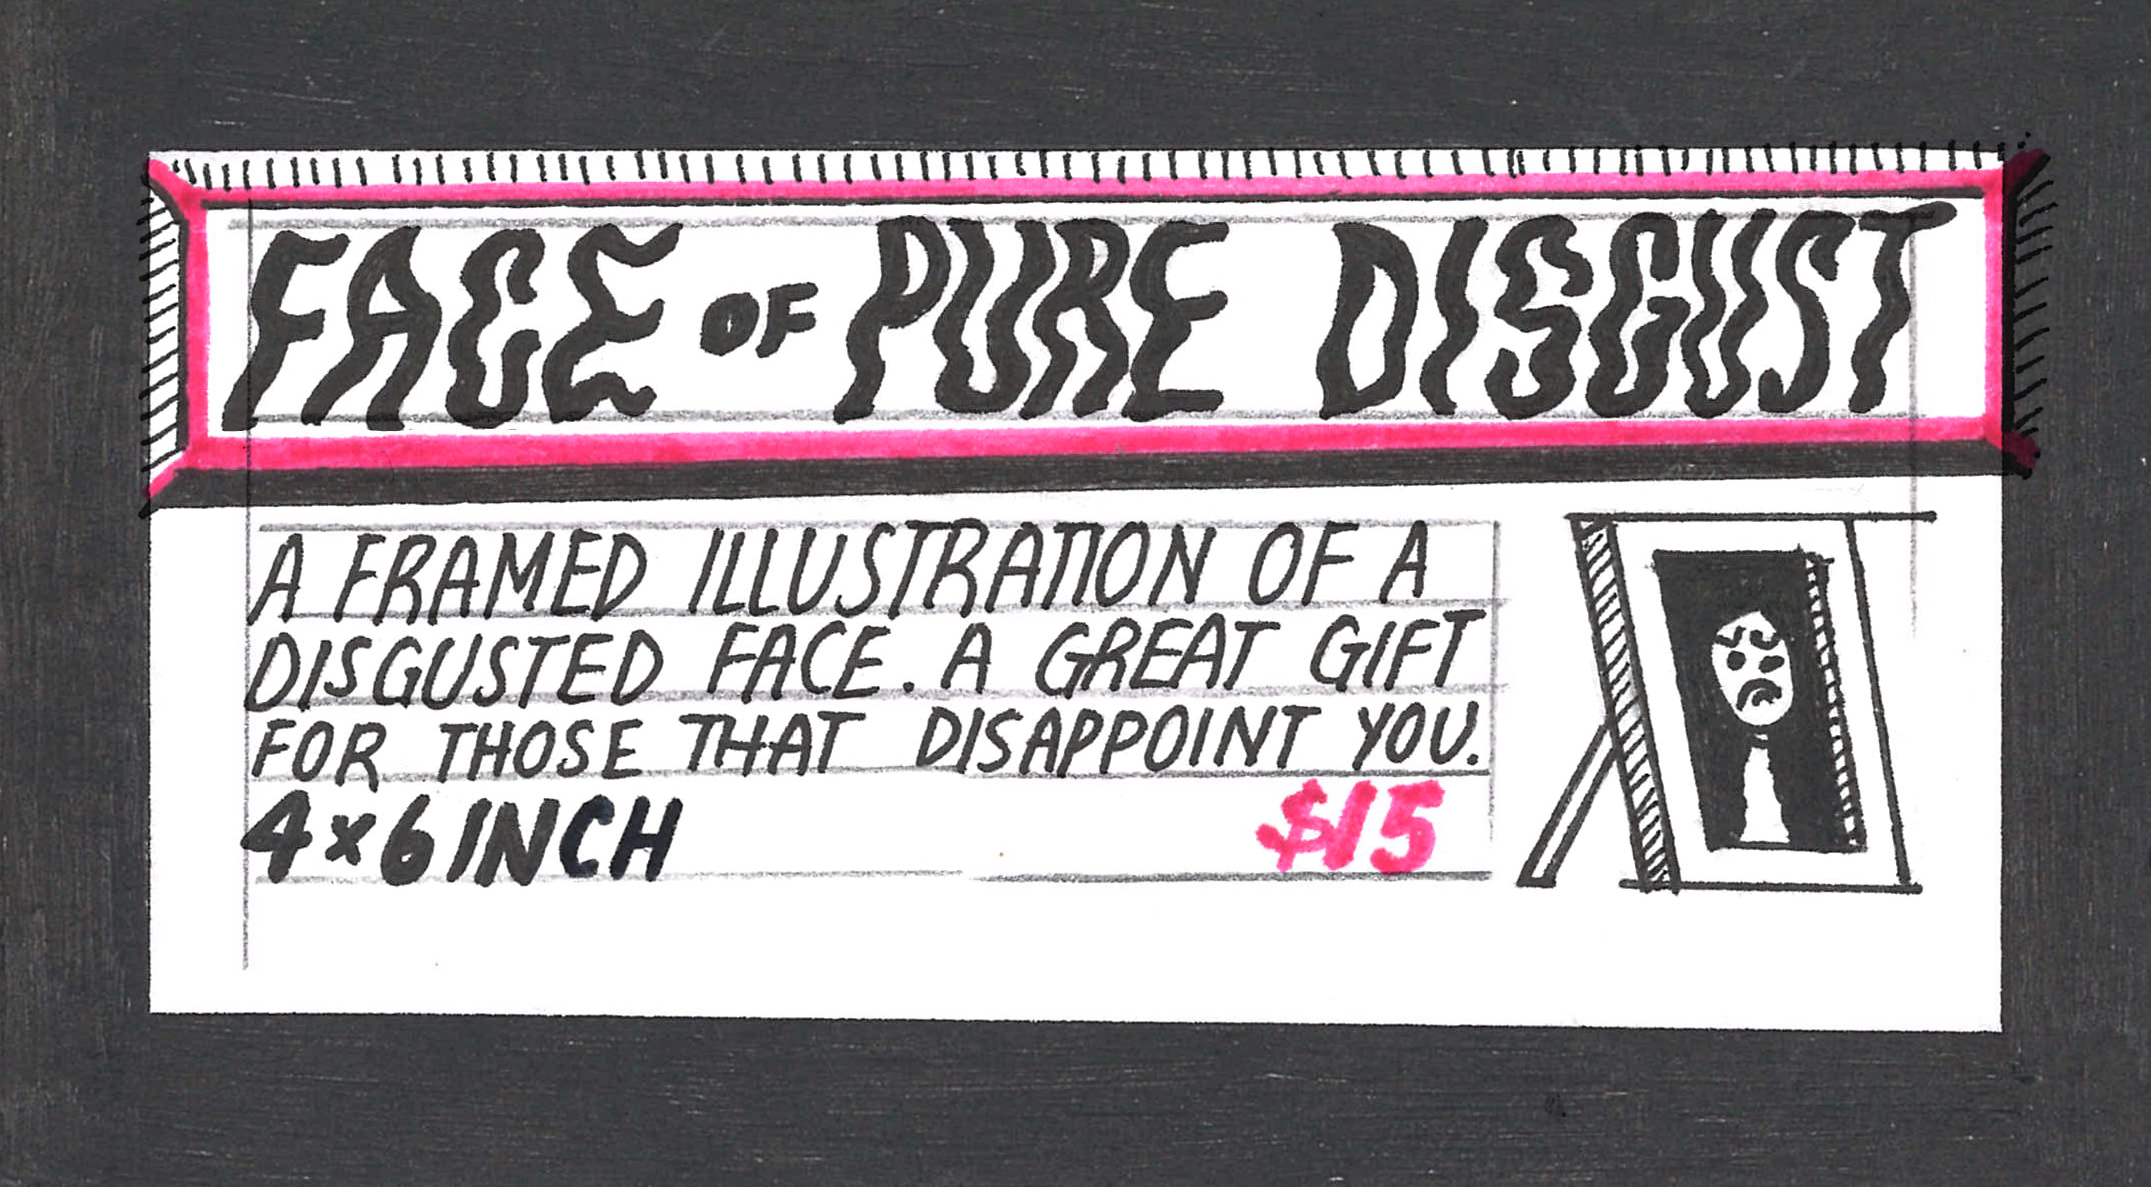 FACE OF PURE DISGUST
A FRAMED ILLUSTRATION OF A
DISGUSTED FACE. A GREAT GIFT
FOR THOSE THAT DISAPPOINT YOU.
4×6 INCH $15